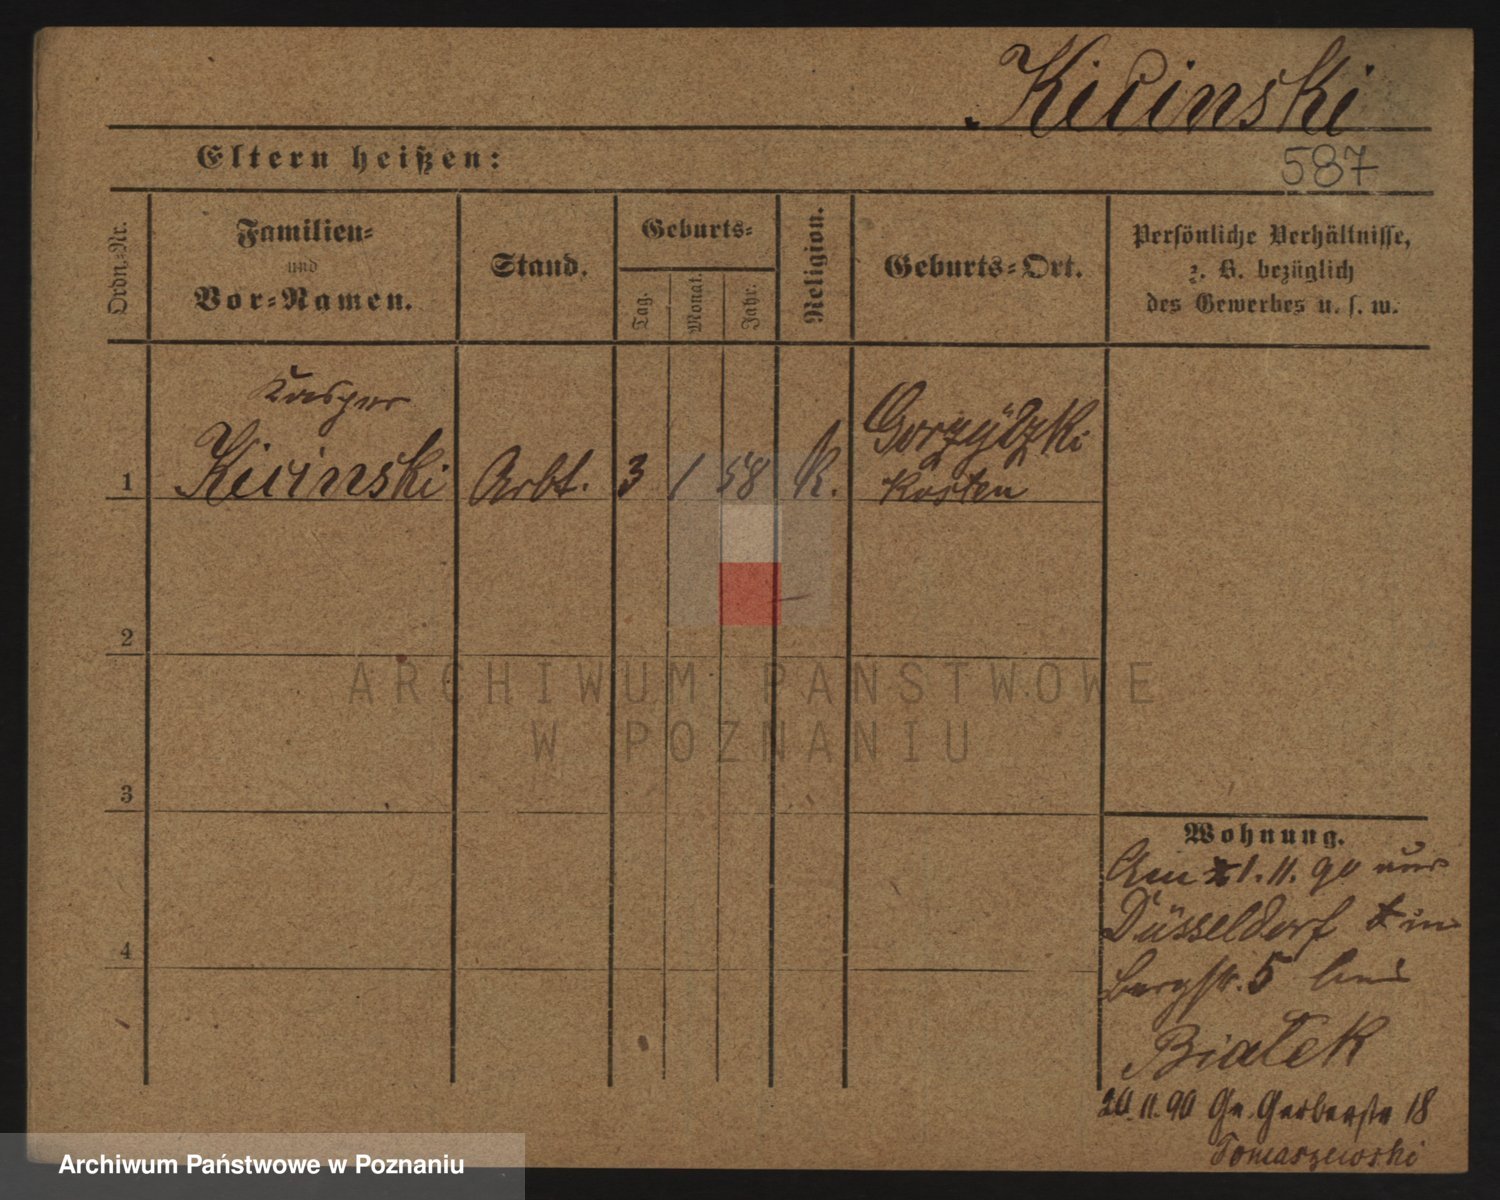 Kicinski
587
Eltern heißen:
Ordn.-Nr.
Familien-
und
Vor-Namen.
Stand.
Geburts-
Tag.
Monat.
Jahr.
Religion.
Geburts-Ort.
Persönliche Verhältnisse,
z. B. bezüglich
des Gewerbes u. s. w.
Kasper
1 Kicinski Arbt. 3 1 58 K.
Kosten
2
3
4
Wohnung.
Am 1. 11. 90 aus
Düsseldorf
Bergstr. 5 bei
Bialek
20. 11. 90 Gr. Gerberstr 18
Tomaszewski
ARCHIWUM PAŃSTWOWE
W POZNANIU
Archiwum Państwowe w Poznaniu